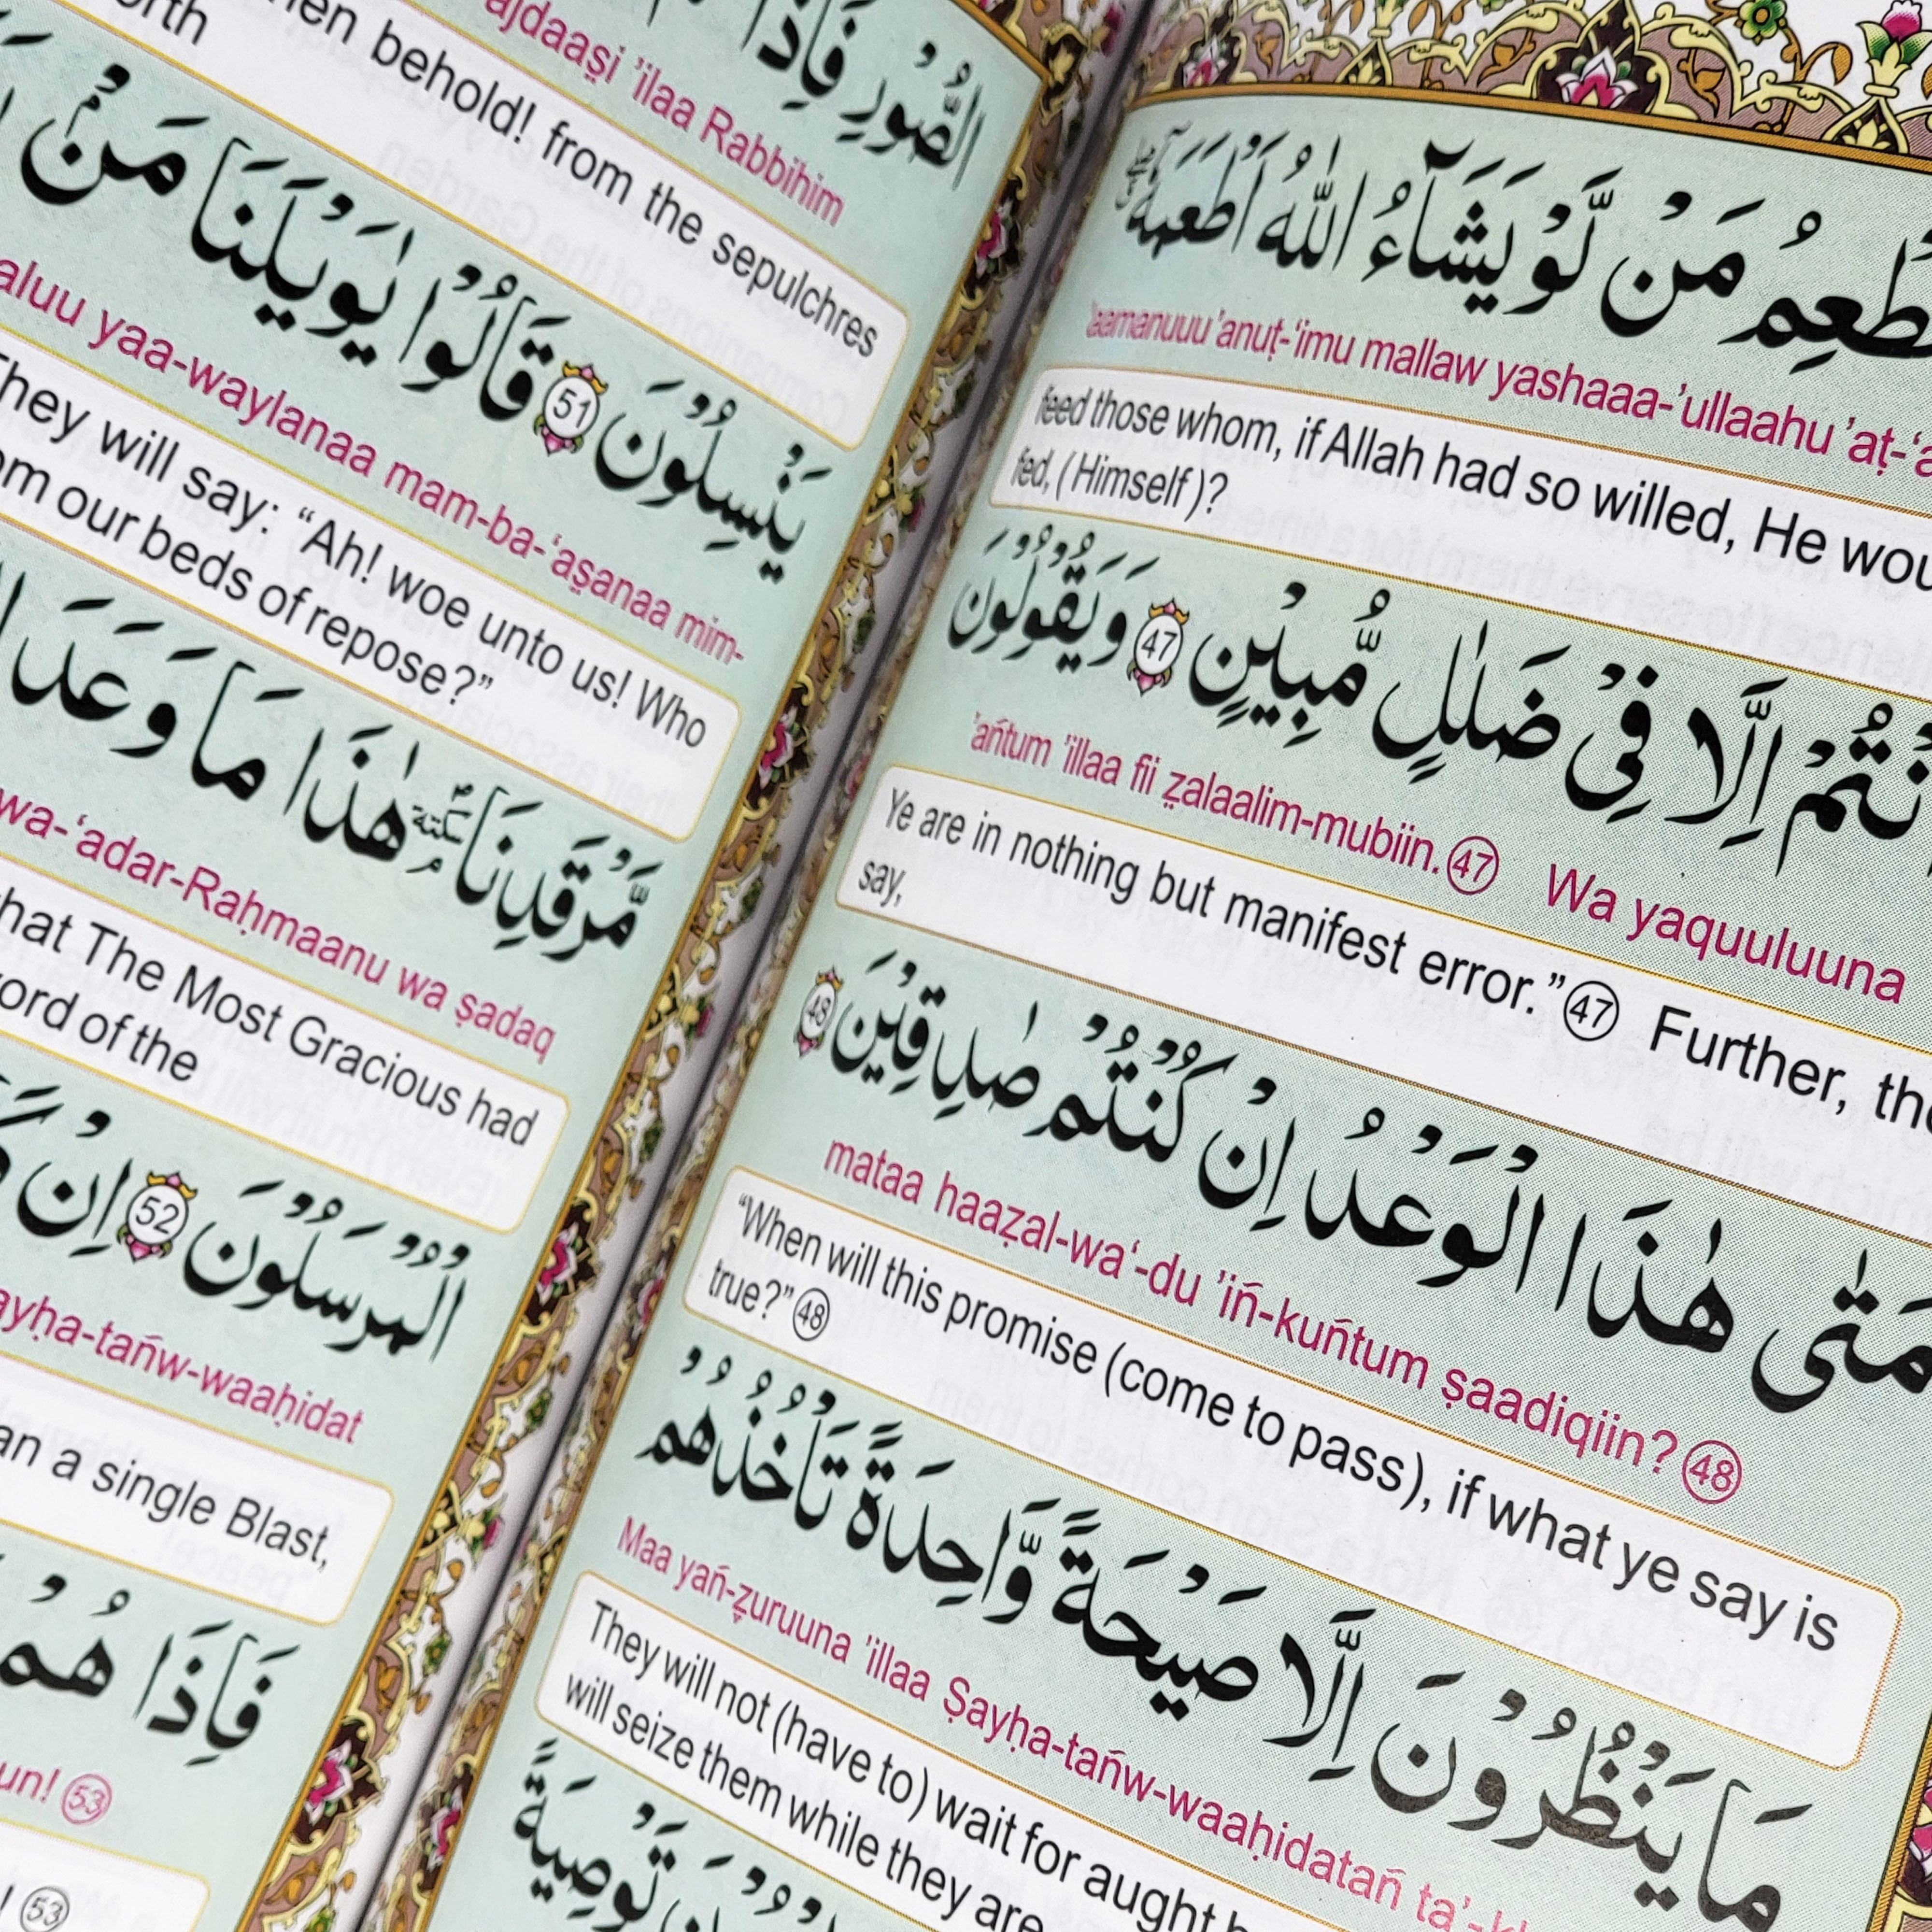 طْعِمُ مَنْ لَّوْ يَشَآءُ اللّٰهُ اَطْعَمَهٗٓ
'aamanuuu 'anuṭ-'imu mallaw yashaaa-'ullaahu 'aṭ-'a
feed those whom, if Allah had so willed, He wou
fed, (Himself)?
نْتُمْ اِلَّا فِيْ ضَلٰلٍ مُّبِيْنٍ 47 وَيَقُوْلُوْنَ
'ańtum 'illaa fii ẓalaalim-mubiin. 47 Wa yaquuluuna
Ye are in nothing but manifest error.” 47 Further, the
say,
مَتٰى هٰذَا الْوَعْدُ اِنْ كُنْتُمْ صٰدِقِيْنَ 48
mataa haaẓal-wa‘-du 'iń-kuńtum ṣaadiqiin? 48
“When will this promise (come to pass), if what ye say is
true?” 48
مَا يَنْظُرُوْنَ اِلَّا صَيْحَةً وَّاحِدَةً تَاْخُذُهُمْ
Maa yań-ẓuruuna 'illaa Ṣayḥa-tańw-waaḥidatań ta'-kh
They will not (have to) wait for aught b
will seize them while they are
تَوْصِيَةً
الصُّوْرِ فَاِذَا
ajdaaṣi 'ilaa Rabbihim
en behold! from the sepulchres
orth
يَنْسِلُوْنَ 51 قَالُوْا يٰوَيْلَنَا مَنْۢ
aluu yaa-waylanaa mam-ba-‘aṣanaa mim-
They will say: “Ah! woe unto us! Who
om our beds of repose?”
مَّرْقَدِنَا ۜ سكتة هٰذَا مَا وَعَدَ ا
wa-‘adar-Raḥmaanu wa ṣadaq
hat The Most Gracious had
ord of the
الْمُرْسَلُوْنَ 52 اِنْ كَ
ayḥa-tańw-waaḥidat
an a single Blast,
فَاِذَا هُمْ
un! 53
! 53